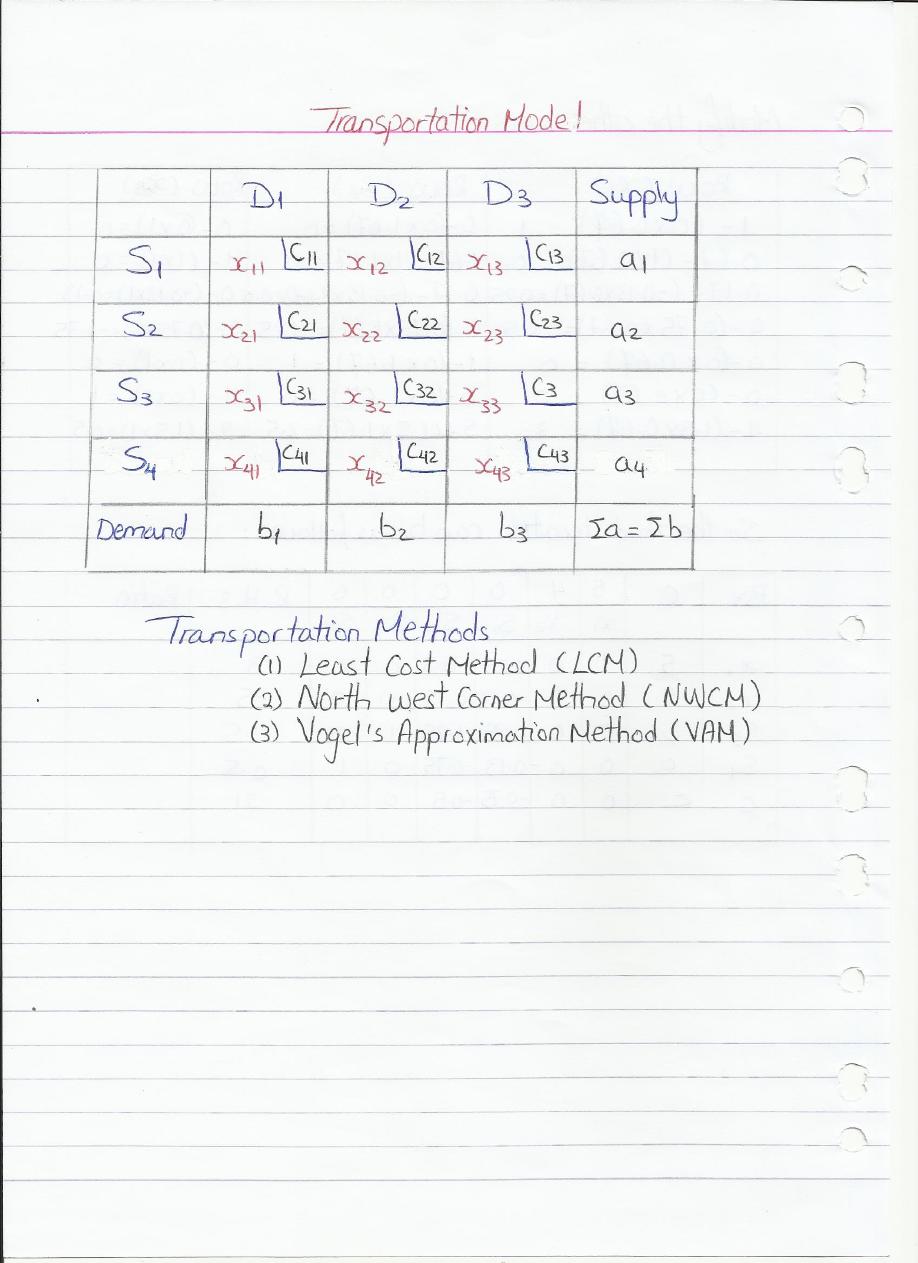 Transportation Model
D1 D2 D3 Supply
S1 x11 C11 x12 C12 x13 C13 a1
S2 x21 C21 x22 C22 x23 C23 a2
S3 x31 C31 x32 C32 x33 C3 a3
S4 x41 C41 x42 C42 x43 C43 a4
Demand b1 b2 b3 Σa = Σb
Transportation Methods
(1) Least Cost Method (LCM)
(2) North west Corner Method (NWCM)
(3) Vogel's Approximation Method (VAM)